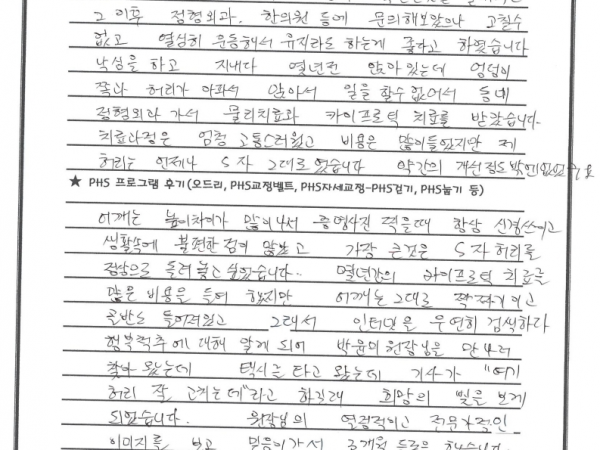 그 이후 정형외과, 한의원 등에 문의해보았으나 고칠수
없고 열심히 운동해서 유지라도 하는게 좋다고 하였습니다
낙심을 하고 지내다 몇년전 앉아있는데 엉덩이
쪽과 허리가 아파서 앉아서 일을 할수 없어서 동네
정형외과 가서 물리치료과 카이프로틱 치료를 받았습니다.
치료과정은 엄청 고통스러웠고 비용은 많이들었지만 제
허리는 언제나 S자 그대로였습니다 약간의 개선정도밖에 없었
★ PHS 프로그램 후기(오드리, PHS교정벨트, PHS자세교정-PHS걷기, PHS눕기 등)
어깨는 높이차이가 많이나서 증명사진 찍을때 항상 신경쓰이고
생활속에 불편한점이 많았고 가장 큰것은 S자 허리를
정상으로 돌려 놓고 싶었습니다. 몇년간의 카이프로틱 치료를
많은 비용을 들여 했지만 어깨는 그대로 짝짝이이고
골반도 틀어져있고 그래서 인터넷을 우연히 검색하다
행복척추에 대해 알게 되어 박윤미원장님을 만나러
찾아 왔는데 택시를 타고 왔는데 기사가 "여기
허리 잘 고치는데"라고 하길래 희망의 빛을 보게
되었습니다. 원장님의 열정적이고 전문가적인
이미지를 보고 믿음이가서 3개월